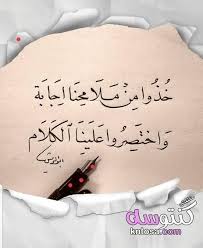 خُذُوا مِنْ مَلَامِحِنَا إِجَابَة
وَاخْتَصِرُوا عَلَيْنَا الْكَلَام
كنتوسه
kntosa.com